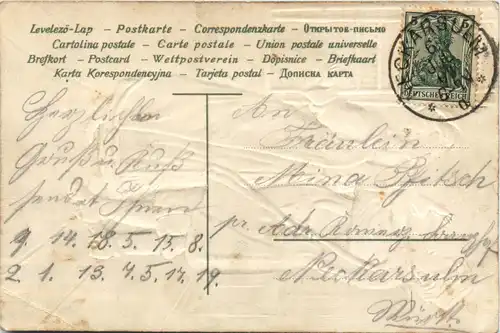 Levelező-Lap – Postkarte – Correspondenzkarte – Открытое-письмо
Cartolina postale – Carte postale – Union postale universelle
Brefkort – Postcard – Weltpostverein – Dópisnice – Briefkaart
Karta Korespondencyjna – Tarjeta postal – Дописна карта
5 5
NECKARSULM
DEUTSCHES REICH
Herzlichen
Gruß u. Kuß
sendet
9. 14. 18. 5. 15. 8.
2. 1. 13. 4. 5. 14. 19.
An
Fräulein
Mina
pr. Adr.
Neckarsulm
Württ.